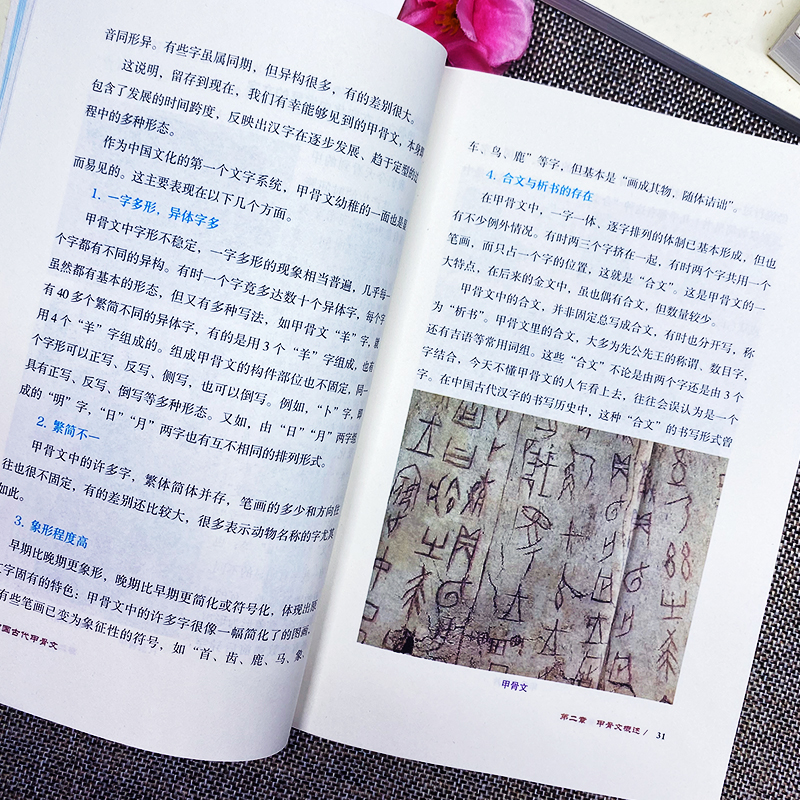 音同形异。有些字虽属同期，但异构很多，有的差别很大。
这说明，留存到现在，我们有幸能够见到的甲骨文，本身
包含了发展的时间跨度，反映出汉字在逐步发展、趋于定型的过
程中的多种形态。
作为中国文化的第一个文字系统，甲骨文幼稚的一面也是显
而易见的。这主要表现在以下几个方面。
1. 一字多形，异体字多
甲骨文中字形不稳定，一字多形的现象相当普遍，几乎每一
个字都有不同的异构。有时一个字竟多达数十个异体字，每个字
虽然都有基本的形态，但又有多种写法，如甲骨文“羊”字，就
有40多个繁简不同的异体字，有的是用3个“羊”字组成，也有
用4个“羊”字组成的。组成甲骨文的构件部位也不固定，同一
个字形可以正写、反写、侧写，也可以倒写。例如，“卜”字，即
具有正写、反写、倒写等多种形态。又如，由“日”“月”两字组
成的“明”字，“日”“月”两字也有互不相同的排列形式。
2. 繁简不一
甲骨文中的许多字，繁体简体并存，笔画的多少和方向往
往也很不固定，有的差别还比较大，很多表示动物名称的字尤其
如此。
3. 象形程度高
早期比晚期更象形，晚期比早期更简化或符号化，体现出
文字固有的特色；甲骨文中的许多字很像一幅简化了的图画，
有些笔画已变为象征性的符号，如“首、齿、鹿、马、象、
国古代甲骨文
车、鸟、鹿”等字，但基本是“画成其物，随体诘诎”。
4. 合文与析书的存在
在甲骨文中，一字一体、逐字排列的体制已基本形成，但也
有不少例外情况。有时两三个字挤在一起，有时两个字共用一个
笔画，而只占一个字的位置，这就是“合文”。这是甲骨文的一
大特点，在后来的金文中，虽也偶有合文，但数量较少。
甲骨文中的合文，并非固定总写成合文，有时也分开写，称
为“析书”。甲骨文里的合文，大多为先公先王的称谓、数目字，
还有吉语等常用词组。这些“合文”不论是由两个字还是由3个
字结合，今天不懂甲骨文的人乍看上去，往往会误认为是一个
字。在中国古代汉字的书写历史中，这种“合文”的书写形式曾
甲骨文
第二章 甲骨文概述 / 31